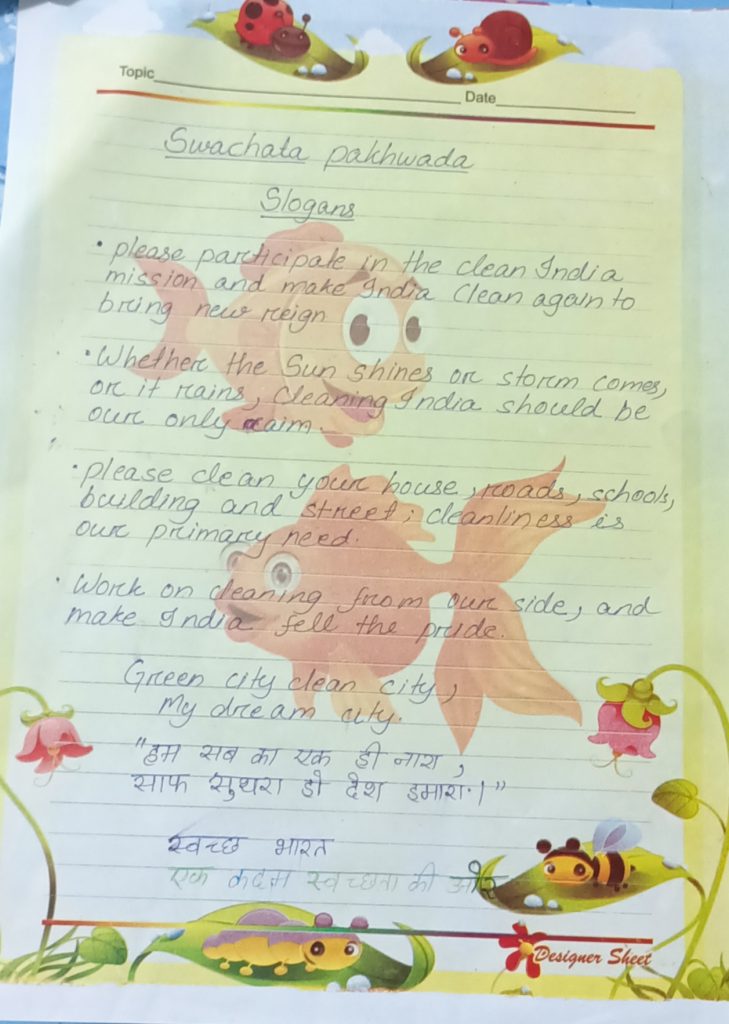 Topic
Date
Swachata pakhwada
Slogans
• please participate in the clean India
mission and make India Clean again to
bring new reign
• Whether the Sun shines or storm comes,
or it rains, Cleaning India should be
our only aim.
• please clean your house, roads, schools,
building and street; cleanliness is
our primary need.
• Work on cleaning from our side, and
make India fell the pride.
Green city clean city,
My dream city.
"हम सब का एक ही नारा,
साफ सुथरा हो देश हमारा।"
स्वच्छ भारत
एक कदम स्वच्छता की ओर
Designer Sheet